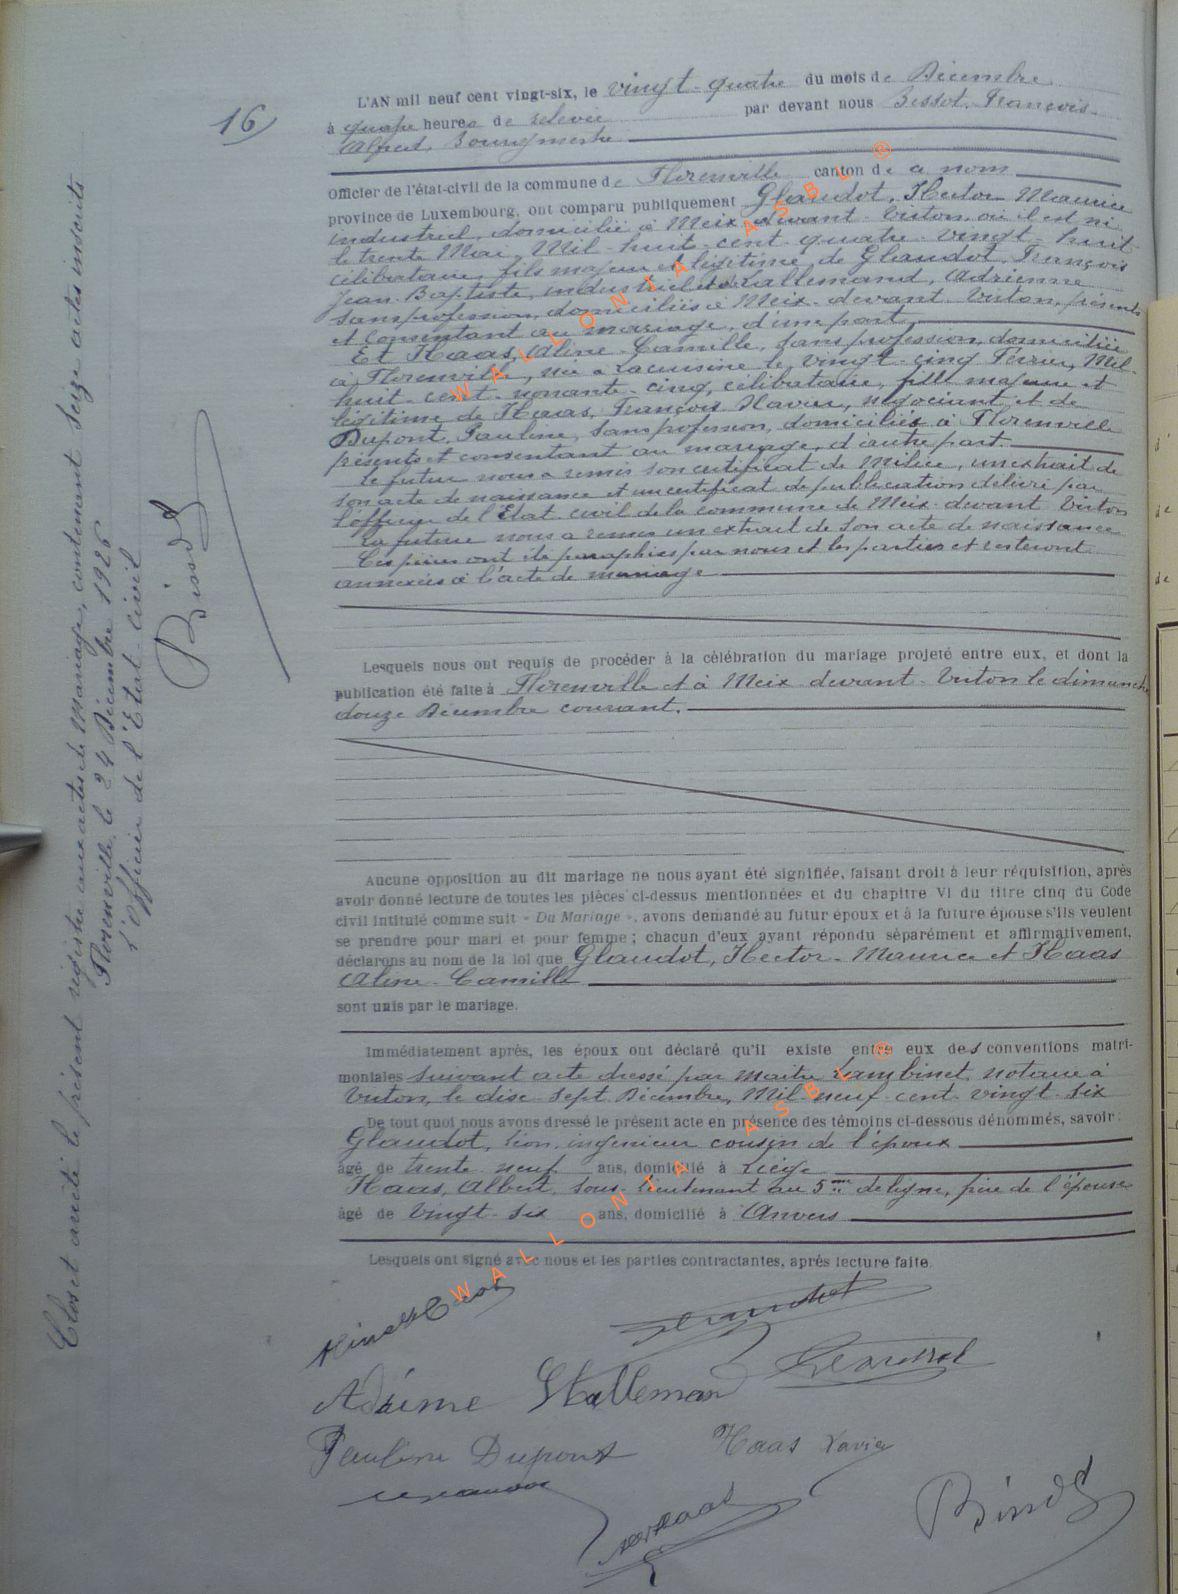 16
L'AN mil neuf cent vingt-six, le vingt-quatre du mois de Décembre
à quatre heures de relevée par devant nous Bessot, François
Alfred, Bourgmestre
Officier de l'état-civil de la commune de Florenville canton de ce nom
province de Luxembourg, ont comparu publiquement Glaudot, Hector Maurice
industriel, domicilié à Meix-devant-Virton, où il est né
le trente Mai, Mil-huit-cent-quatre-vingt-huit
célibataire, fils majeur et légitime de Glaudot, François
Jean-Baptiste, industriel et de Lallemand, Adrienne
sans profession, domiciliés à Meix-devant-Virton, présents
et consentant au mariage, d'une part,
Et Haas, Aline-Camille, sans profession, domiciliée
à Florenville, née à Lacuisine le vingt-cinq Février, Mil-
huit-cent-nonante-cinq, célibataire, fille majeure et
légitime de Haas, François Xavier, négociant et de
Dupont, Pauline, sans profession, domiciliés à Florenville
présents et consentant au mariage, d'autre part.
Le futur nous a remis son certificat de Milice, un extrait de
son acte de naissance et un certificat de publication délivré par
l'officier de l'Etat-civil de la commune de Meix-devant-Virton
La future nous a remis un extrait de son acte de naissance
Ces pièces ont été paraphées par nous et les parties et resteront
annexées à l'acte de mariage
Lesquels nous ont requis de procéder à la célébration du mariage projeté entre eux, et dont la
publication été faite à Florenville et à Meix-devant-Virton le dimanche
douze Décembre courant.
Aucune opposition au dit mariage ne nous ayant été signifiée, faisant droit à leur réquisition, après
avoir donné lecture de toutes les pièces ci-dessus mentionnées et du chapitre VI du titre cinq du Code
civil intitulé comme suit « Du Mariage », avons demandé au futur époux et à la future épouse s'ils veulent
se prendre pour mari et pour femme ; chacun d'eux ayant répondu séparément et affirmativement,
déclarons au nom de la loi que Glaudot, Hector-Maurice et Haas
Aline-Camille
sont unis par le mariage.
Immédiatement après, les époux ont déclaré qu'il existe entre eux des conventions matri-
moniales suivant acte dressé par Maitre Lambinet, notaire à
Virton, le disc-sept Décembre, Mil-neuf-cent-vingt-six
De tout quoi nous avons dressé le présent acte en présence des témoins ci-dessous dénommés, savoir :
Glaudot, Léon, ingénieur cousin de l'époux
âgé de trente-neuf ans, domicilié à Liège
Haas, Albert, sous-lieutenant au 5me de ligne, frère de l'épouse
âgé de vingt-six ans, domicilié à Anvers
Lesquels ont signé avec nous et les parties contractantes, après lecture faite.
Aline Haas
Adrienne Lallemand
Pauline Dupont
Haas Xavier
Clos et arrêté le présent registre aux actes de Mariage, contenant seize actes inscrits
Florenville, le 24 Décembre 1926
L'Officier de l'Etat-civil
WALLONIA ASBL ®
WALLONIA ASBL ®